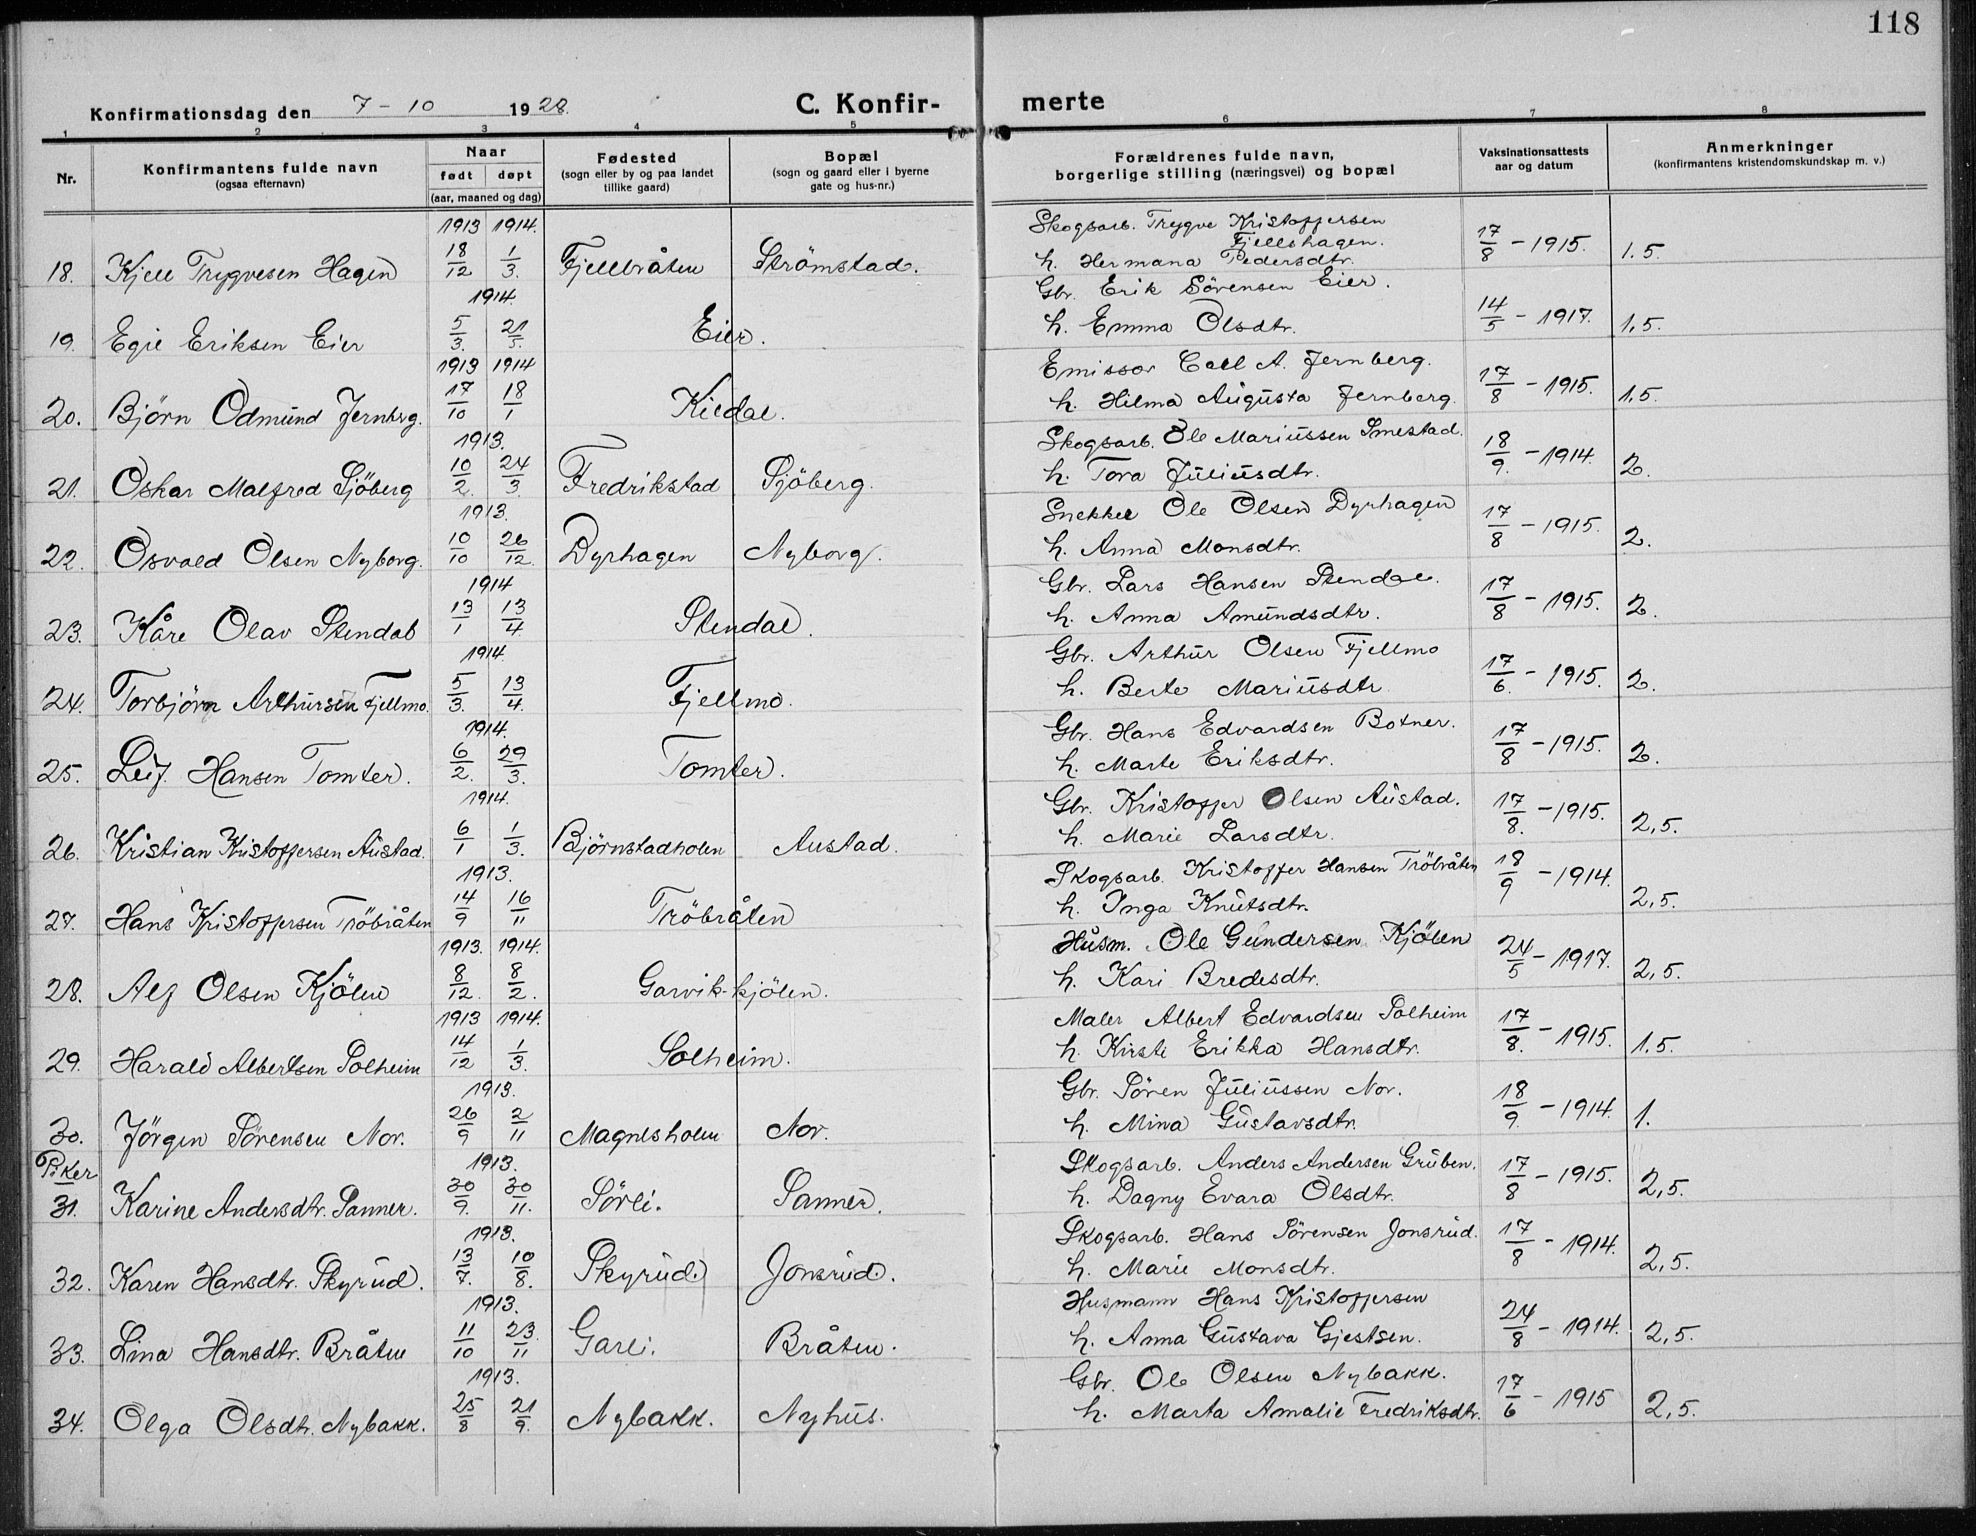 118
Konfirmationsdag den 7-10 1928. C. Konfir- merte
1 2 3 4 5 6 7 8
Nr. Konfirmantens fulde navn (ogsaa efternavn) Naar født døpt (aar, maaned og dag) Fødested (sogn eller by og paa landet tillike gaard) Bopæl (sogn og gaard eller i byerne gate og hus-nr.) Forældrenes fulde navn, borgerlige stilling (næringsvei) og bopæl Vaksinationsattests aar og datum Anmerkninger (konfirmantens kristendomskundskap m. v.)
1913 1914. Skogsarb. Trygve Kristoffersen Fjellshagen.
18. Kjell Trygvesen Hagen 18/12 1/3. Fjellbråten Strömstad. h. Hermana Pedersdtr. 17/8 - 1915. 1.5.
1914. Gbr. Erik Sörensen Eier.
19. Egil Eriksen Eier 5/3. 21/5. Eier. h. Emma Olsdtr. 14/5 - 1917. 1,5.
1913 1914 Emissør Carl A. Jernberg.
20. Björn Odmund Jernberg. 17/10 18/1 Kildal. h. Hilma Augusta Jernberg. 17/8 - 1915. 1,5.
1913. Skogsarb. Ole Mariussen Smestad.
21. Oskar Malfred Sjöberg 10/2. 24/3. Fredrikstad Sjöberg. h. Tora Juliusdtr. 18/9. - 1914. 2.
1913. Snekker Ole Olsen Dyrhagen
22. Osvald Olsen Nyborg. 10/10 26/12. Dyrhagen Nyborg. h. Anna Monsdtr. 17/8 - 1915. 2.
1914 Gbr. Lars Hansen Stendal.
23. Kåre Olav Stendal 13/1 13/4 Stendal. h. Anna Amundsdtr. 17/8 - 1915. 2.
1914. Gbr. Arthur Olsen Fjellmo
24. Torbjörn Arthursen Fjellmo. 5/3. 13/4. Fjellmo. h. Berte Mariusdtr 17/6. - 1915. 2.
1914. Gbr. Hans Edvardsen Botner.
25. Leif Hansen Tomter. 6/2. 29/3. Tomter. h. Marte Eriksdtr. 17/8 - 1915. 2.
1914. Gbr. Kristoffer Olsen Austad.
26. Kristian Kristoffersen Austad. 6/1 1/3. Björnstadholen Austad. h. Marie Larsdtr. 17/8. - 1915. 2,5.
1913. Skogsarb. Kristoffer Hansen Tröbråten
27. Hans Kristoffersen Tröbråten 14/9 16/11 Tröbråten h. Inga Knutsdtr. 18/9 - 1914. 2,5.
1913. 1914. Husm. Ole Gundersen Kjölen
28. Alf Olsen Kjölen 8/12. 8/2. Garvik-kjölen. h. Kari Bredesdtr. 24/5 - 1917. 2,5.
1913 1914. Maler Albert Edvardsen Solheim
29. Harald Albertsen Solheim 14/12 1/3. Solheim. h. Kirsti Erikka Hansdtr. 17/8. - 1915. 1.5.
1913. Gbr. Sören Juliussen Nor.
30. Jörgen Sörensen Nor. 26/9 2/11 Magnesholen Nor. h. Mina Gustavsdtr. 18/9. - 1914. 1.
Piker 1913. Skogsarb. Anders Andersen Gruben.
31. Karine Andersdtr. Sanner. 30/9. 30/11. Sörli. Sanner. h. Dagny Evara Olsdtr. 17/8 - 1915. 2,5.
1913. Skogsarb. Hans Sörensen Jonsrud.
32. Karen Hansdtr. Skyrud. 13/7. 10/8. Skyrud. Jonsrud. h. Marie Monsdtr. 17/8 - 1914. 2,5.
1913. Husmann Hans Kristoffersen
33. Lina Hansdtr. Bråten 11/10 23./11 Garli. Bråten. h. Anna Gustava Gjestsen. 24/8 - 1914. 2,5.
1913. Gbr. Ole Olsen Nybakk.
34. Olga Olsdtr. Nybakk. 25/8 21/9. Nybakk. Nyhus. h. Marta Amalie Fredriksdtr. 17/6 - 1915 2,5.